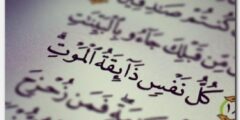 كُنتُمْ صَٰدِقِينَ
مِّن قَبْلِكَ جَآءُو بِٱلْبَيِّنَٰتِ
كُلُّ نَفْسٍ ذَآئِقَةُ ٱلْمَوْتِ
فَمَن زُحْزِحَ